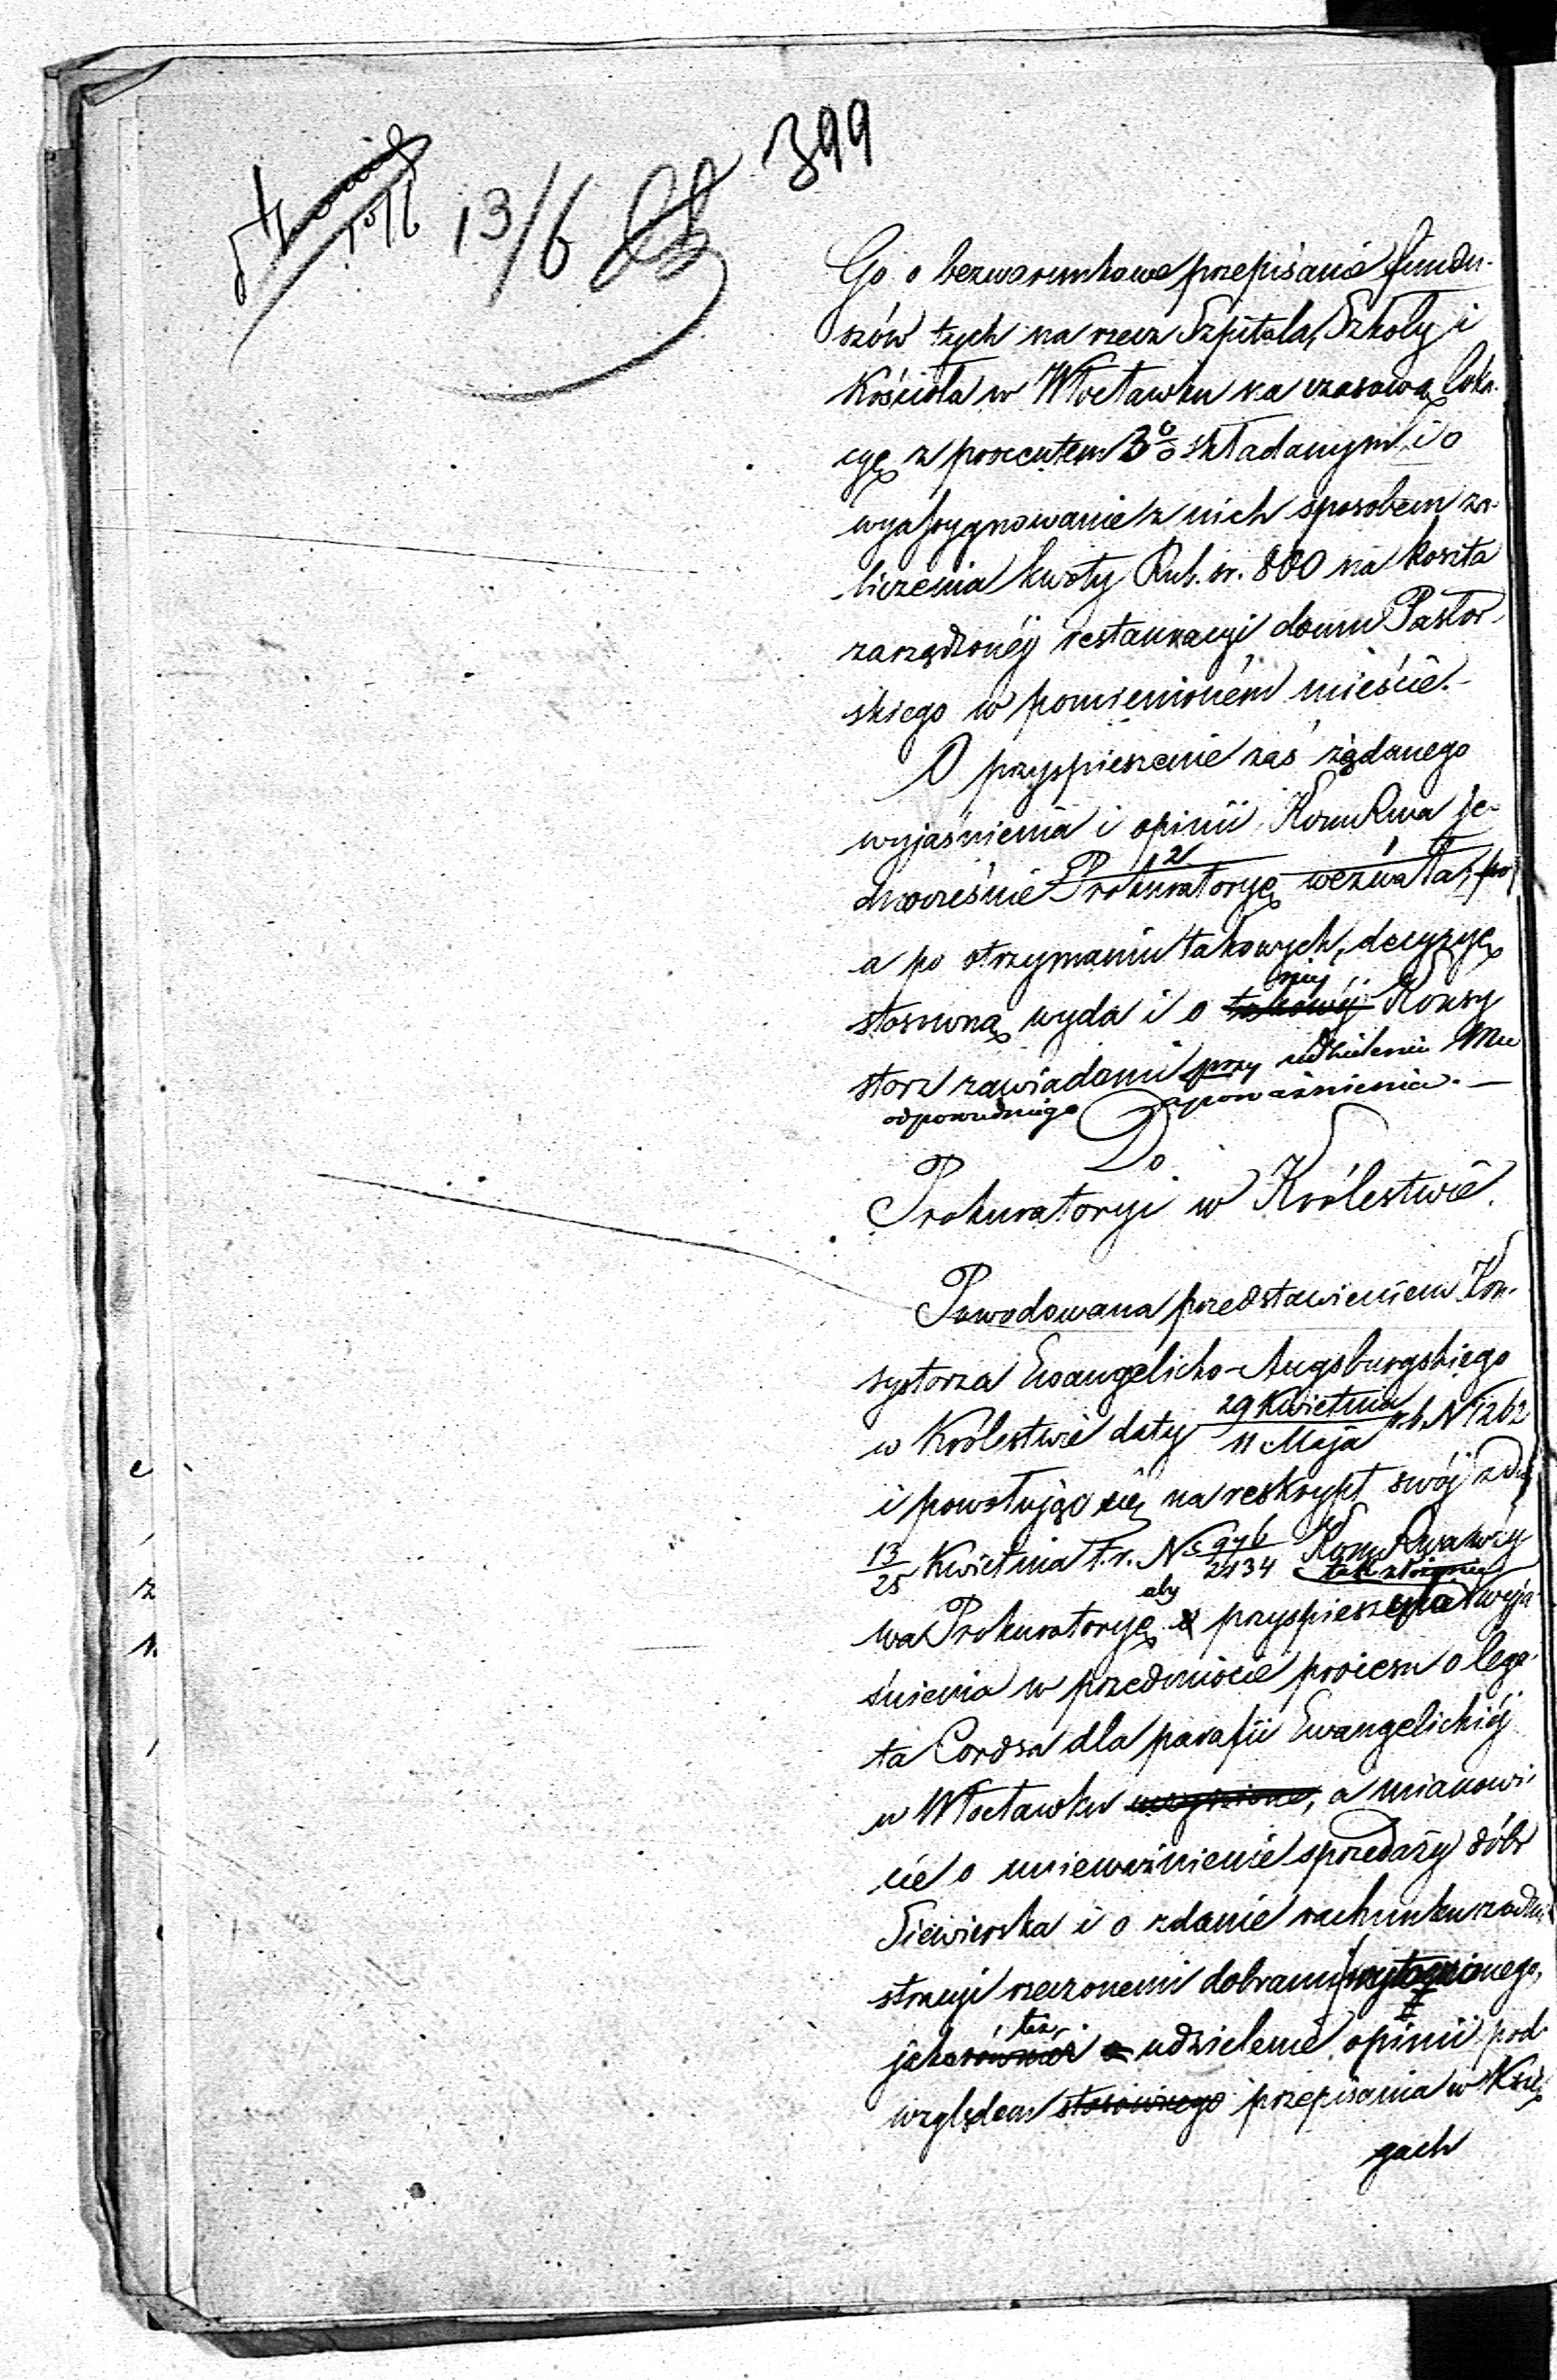 399
13/6
10/6
Go o bezwarunkowe przepisanie fundu-
szów tych na rzecz Szpitala, Szkoły i
Kościoła w Włocławku na czasową loka-
cyę z procentem 3% składanym, i o
wyassygnowanie z nich sposobem za-
liczenia kwoty Rub. sr. 800 na koszta
zarządzonéj restauracyi domu Pastor-
skiego w pomienioném mieście.-
O przyspieszenie zaś żądanego
wyjaśnienia i opinii Kom Rwa je-
dnocześnie Prokuratoryę wezwała, po
a po otrzymaniu takowych, decyzyę
stosowną wyda i o takowéj niéj Konsy
storz zawiadomi przy udzieleniu Mu
odpowiedniego upoważnienia. -
Do
Prokuratoryi w Królestwie.
Powodowana przedstawieniem Kon-
systorza Ewangelicko-Augsburgskiego
w Królestwie daty 29 Kwietnia / 11 Maja r.b. N 1262
i powołując się na reskrypt swój z d.
13/25 Kwietnia t.r. N 976/2434 Kom Rwa wzy
wa Prokuratoryę aby przyspieszyła wyja-
śnienia w przedmiocie procesu o lega-
ta Cordsa dla parafii Ewangelickiéj
w Włocławku, a mianowi-
cie o unieważnienie sprzedaży dóbr
Siewierska i o zdanie rachunku z admi
stracyi rzeczonemi dobrami wytoczonego,
jako też również udzielenie opinii pod
względem stosownego przepisania w Księ
gach